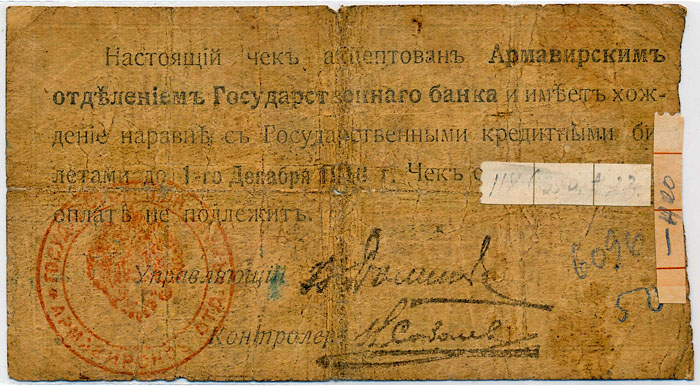 Настоящій чекъ акцептованъ Армавирскимъ
отдѣленіемъ Государственнаго банка и имѣетъ хож-
деніе наравнѣ съ Государственными кредитными би-
летами до 1-го Декабря 1918 г. Чекъ
оплатѣ не подлежитъ.
Управляющій
Контролеръ
6090
50